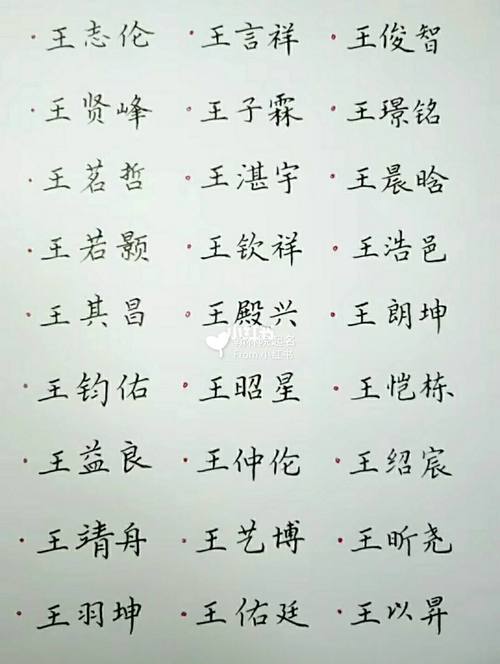 ·王志伦 ·王言祥 ·王俊智
·王贤峰 ·王子霖 ·王璟铭
·王茗哲 ·王湛宇 ·王晨晗
·王若颢 ·王钦祥 ·王浩邑
·王其昌 ·王殿兴 ·王朗坤
小红书
From 小红书
·王钧佑 ·王昭星 ·王恺栋
·王益良 ·王仲伦 ·王绍宸
·王靖舟 ·王艺博 ·王昕尧
·王羽坤 ·王佑廷 ·王以昇